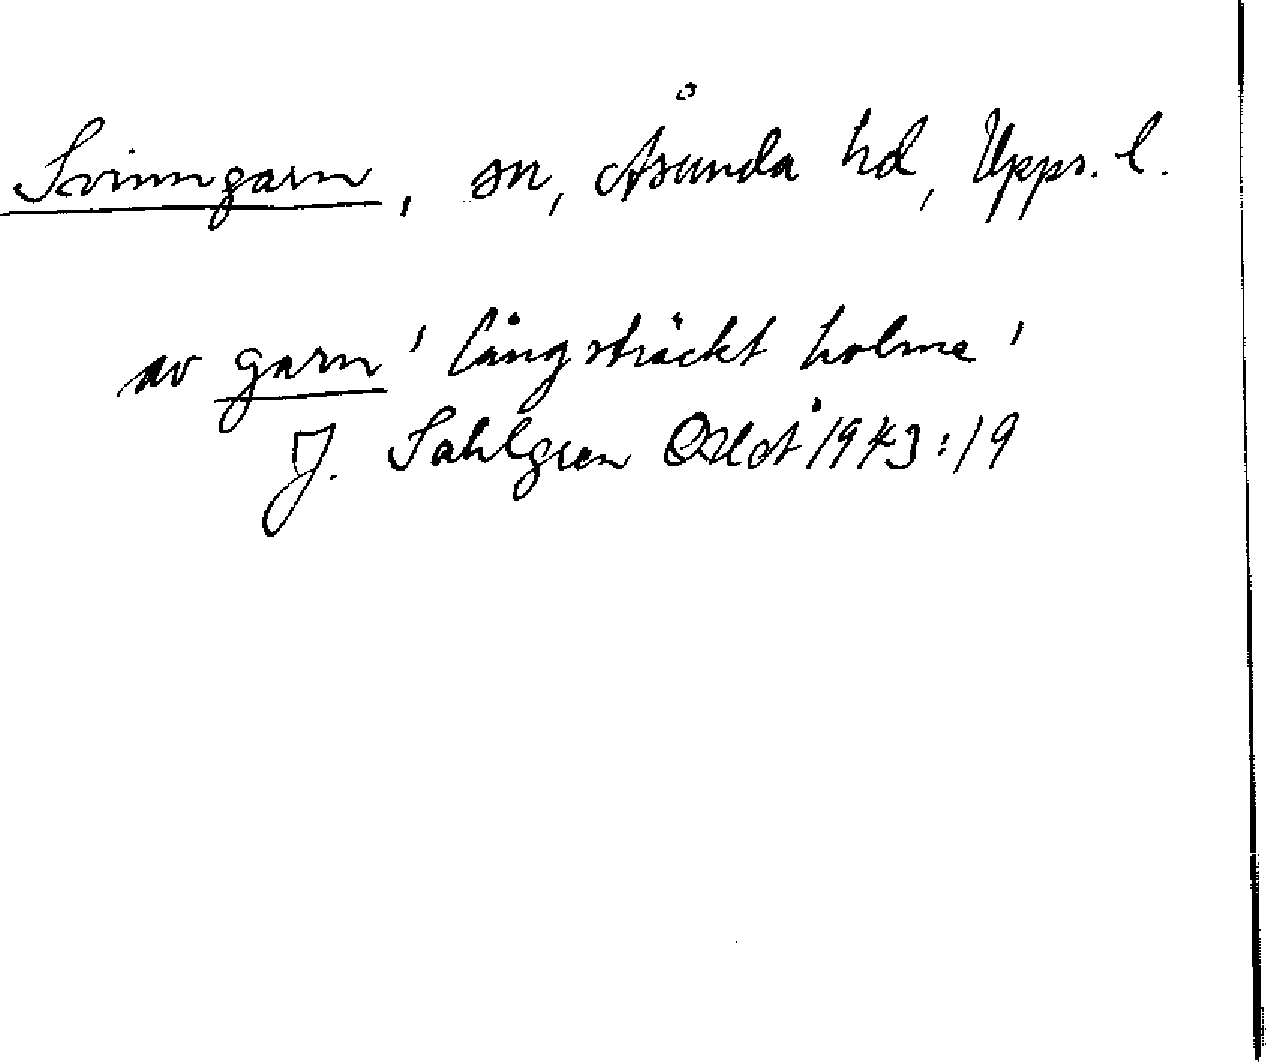 Svinngarn, sn, Åsunda hd, Upps. l.
av garn 'långsträckt holme'
J. Sahlgren OUÅ 1943:19